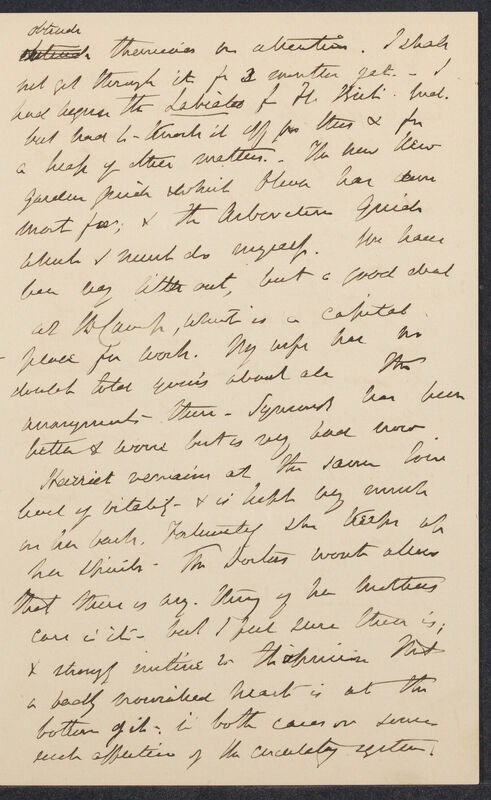 obtrude
themselves on attention. I shall
not get through it for 2 months yet. - I
had begun the Labiatae for Fl. Brit. Ind.
but had to throw it off for this & for
a heap of other matters. - The new Kew
Garden Guide which Oliver has done
most for; & the Arboretum Guide
which I must do myself. We have
been very little out, but a good deal
at the Camp, which is a capital
place for work. My wife has no
doubt told yours about all the
arrangements there - Symonds has been
better & worse but is very bad now
Harriet remains at the same low
level of vitality - & is kept very much
on her back. Fortunately she keeps up
her spirits - The Doctors wont allow
that there is any thing of her Mothers
case in it - but I feel sure there is;
& strongly incline to the opinion that
a badly nourished heart is at the
bottom of it - in both cases or some
such affection of the circulatory system.